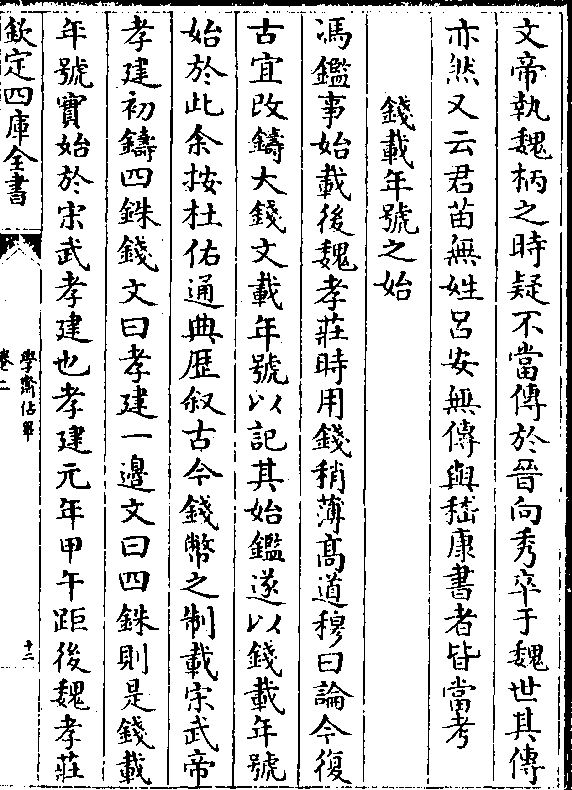 文帝執魏柄之時疑不當傳於晉向秀卒于魏世其傳
亦然又云君苗無姓呂安無傳與嵇康書者皆當考
錢載年號之始
馮鑑事始載後魏孝莊時用錢稍薄髙道穆曰論今復
古宜改鑄大錢文載年號以記其始鑑遂以錢載年號
始於此余按杜佑通典歴叙古今錢幣之制載宋武帝
孝建初鑄四銖錢文曰孝建一邊文曰四銖則是錢載
年號實始於宋武孝建也孝建元年甲午距後魏孝莊
欽定四庫全書
學齋佔畢
卷二
十二